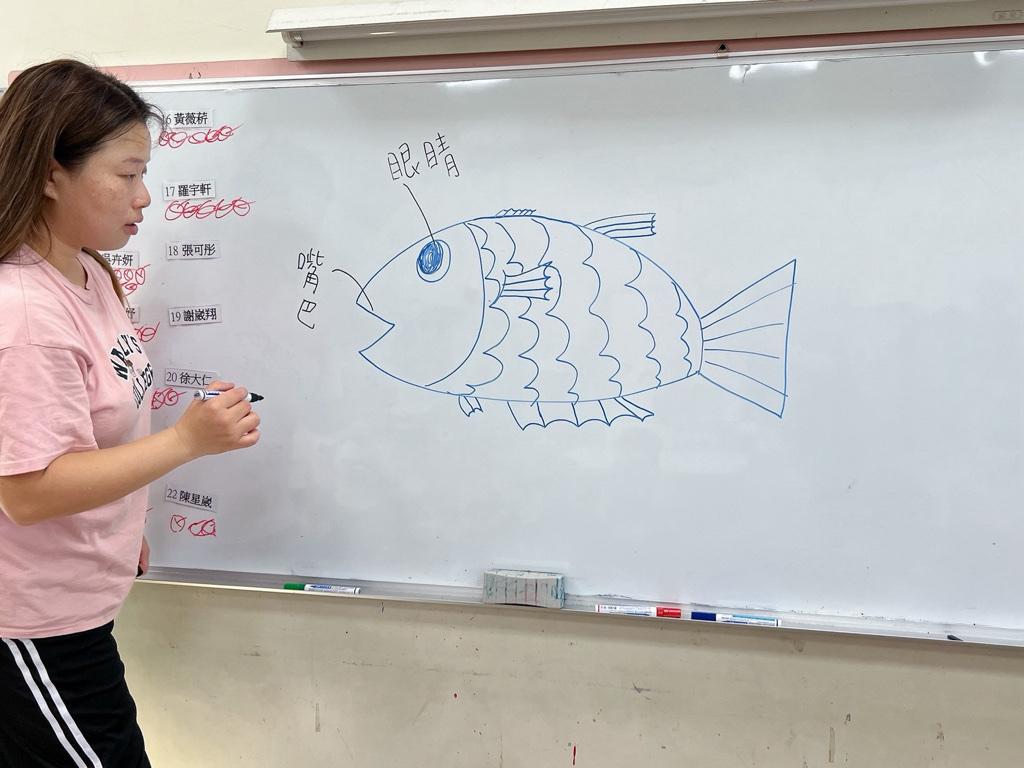 6 黃薇菥
17 羅宇軒
18 張可彤
吳卉妍
19 謝崴翔
妤
20 徐大仁
22 陳星崴
眼睛
嘴巴